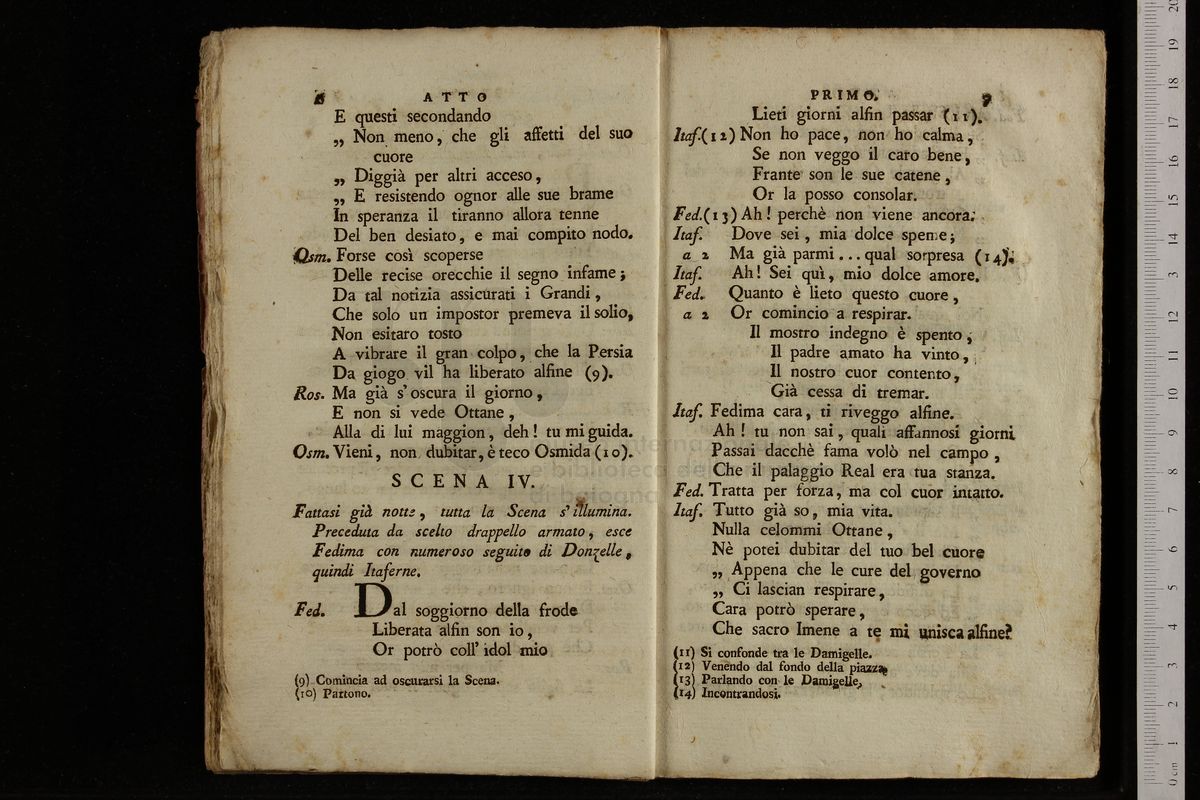 8 ATTO
E questi secondando
„ Non meno, che gli affetti del suo
cuore
„ Diggià per altri acceso,
„ E resistendo ognor alle sue brame
In speranza il tiranno allora tenne
Del ben desiato, e mai compito nodo.
Osm. Forse così scoperse
Delle recise orecchie il segno infame;
Da tal notizia assicurati i Grandi,
Che solo un impostor premeva il solio,
Non esitaro tosto
A vibrare il gran colpo, che la Persia
Da giogo vil ha liberato alfine (9).
Ros. Ma già s'oscura il giorno,
E non si vede Ottane,
Alla di lui maggion, deh! tu mi guida.
Osm. Vieni, non dubitar, è teco Osmida (10).
SCENA IV.
Fattasi già notte, tutta la Scena s'illumina.
Preceduta da scelto drappello armato, esce
Fedima con numeroso seguito di Donzelle,
quindi Itaferne.
Fed. Dal soggiorno della frode
Liberata alfin son io,
Or potrò coll' idol mio
(9) Comincia ad oscurarsi la Scena.
(10) Partono.
PRIMO. 9
Lieti giorni alfin passar (11).
Itaf.(12) Non ho pace, non ho calma,
Se non veggo il caro bene,
Frante son le sue catene,
Or la posso consolar.
Fed.(13) Ah! perchè non viene ancora;
Itaf. Dove sei, mia dolce speme;
a 2 Ma già parmi... qual sorpresa (14).
Itaf. Ah! Sei quì, mio dolce amore.
Fed. Quanto è lieto questo cuore,
a 2 Or comincio a respirar.
Il mostro indegno è spento,
Il padre amato ha vinto,
Il nostro cuor contento,
Già cessa di tremar.
Itaf. Fedima cara, ti riveggo alfine.
Ah! tu non sai, quali affannosi giorni
Passai dacchè fama volò nel campo,
Che il palaggio Real era tua stanza.
Fed. Tratta per forza, ma col cuor intatto.
Itaf. Tutto già so, mia vita.
Nulla celommi Ottane,
Nè potei dubitar del tuo bel cuore
„ Appena che le cure del governo
„ Ci lascian respirare,
Cara potrò sperare,
Che sacro Imene a te mi unisca alfine?
(11) Si confonde tra le Damigelle.
(12) Venendo dal fondo della piazza.
(13) Parlando con le Damigelle.
(14) Incontrandosi.